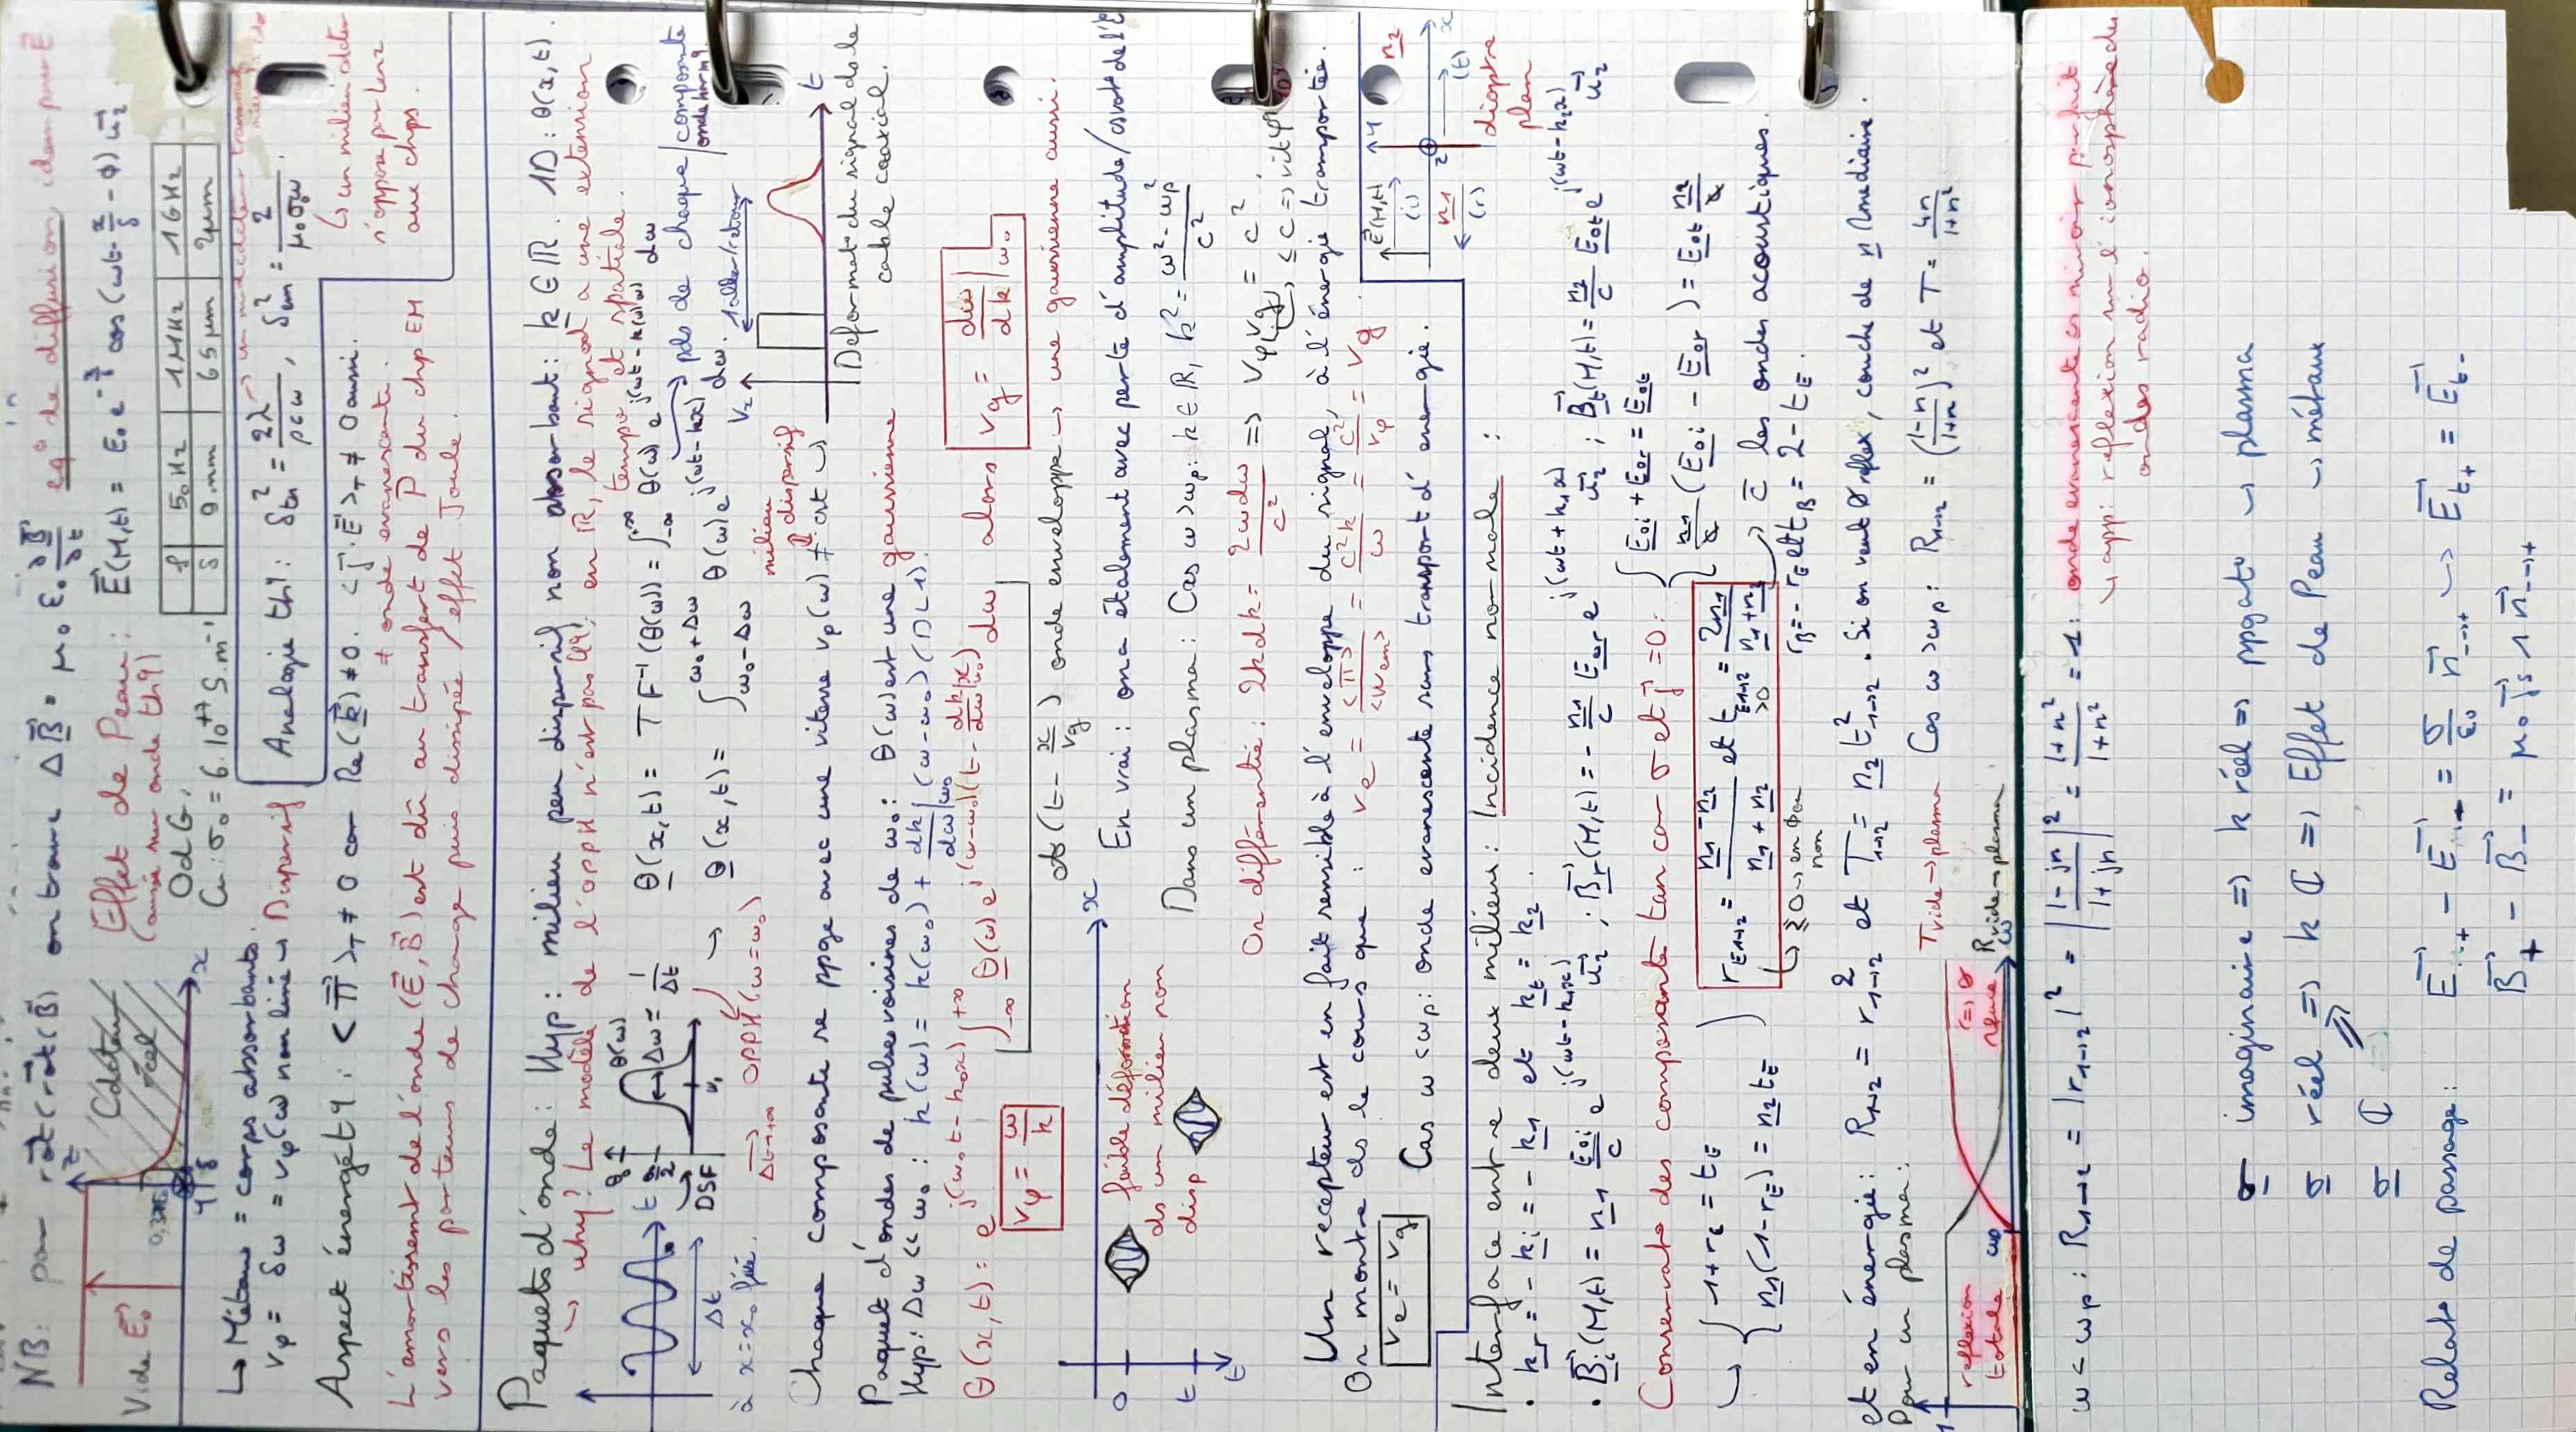 NB: pour rot(rot(B)) on trouve ΔB = μ₀ ε₀ ∂B/∂t eq° de diffusion, idem pour E
Vide E₀
Cducteur réel
z
x
y
δ
Effet de Peau:
E(M,t) = E₀ e^(-x/δ) cos(ωt - x/δ - φ) u_z.
(aussi sur onde th9)
OdG:
Cu: σ₀ = 6.10^+7 S.m⁻¹
f 50Hz 1MHz 1GHz
δ 9mm 65μm 2μm
↳ Métaux = corps absorbants.
v_φ = δω = v_φ(ω) non linéR → Dispersif
Analogie th9: δ_th² = 2λ/ρcω, δ_em² = 2/μ₀σ₀ω.
↳ un milieu cdcteur s'oppose par lenz au chps.
Aspect énergét9: <Π>_T ≠ 0 car Re(k) ≠ 0. <j.E>_T ≠ 0 aussi.
≠ onde évanescente.
L'amortissement de l'onde (E,B) est dû au transfert de P du chp EM
vers les porteurs de charge puis dissipée / effet Joule.
Paquets d'onde: Hyp: milieu peu dispersif non absorbant: k ∈ ℝ. 1D: θ(x,t).
→ why? Le modèle de l'oppH n'est pas φ9; en IR, le signal a une extension
tempo et spatiale.
DSF
Δω = 1/Δt
θ(ω)
Δt
à x = x₀ fixé.
Δt→+∞ OPPH (ω=ω₀)
θ(x,t) = TF⁻¹(θ(ω)) = ∫_-∞^+∞ θ(ω) e^j(ωt - k(ω)x) dω
θ(x,t) = ∫_ω₀-Δω^ω₀+Δω θ(ω) e^j(ωt-kx) dω.
→ pds de chaque composante onde harm9.
Chaque composante se ppge avec une vitesse v_φ(ω) ≠ cst ↪
milieu dispersif
V₂
1 aller/retour
t
Déformat° du signal ds le
cable coaxial.
Paquet d'ondes de pulses voisines de ω₀: θ(ω) est une gaussienne
Hyp: Δω << ω₀: k(ω) = k(ω₀) + dk/dω|ω₀ (ω-ω₀) (DL1).
θ(x,t) = e^j(ω₀t - k₀x) ∫_-∞^+∞ θ(ω) e^j(ω-ω₀)(t - dk/dω|ω₀ x) dω alors v_g = dω/dk|ω₀
v_φ = ω/k
A(t - x/v_g) onde enveloppe → une gaussienne aussi.
faible déformation
ds un milieu non
disp
0
x
t
En vrai: on a étalement avec perte d'amplitude/
Dans un plasma: Cas ω > ω_p: k ∈ ℝ, k² = (ω² - ω_p²)/c²
On différentie: 2k dk = 2ω dω/c² => v_φ v_g = c²
v_g ≤ c => vit φ
Un récepteur est en fait sensible à l'enveloppe du signal, à l'énergie transportée.
On montre ds le cours que: v_e = <Π>/<w_em> = c²k/ω = c²/v_φ = v_g.
v_e = v_g
Cas ω < ω_p: onde évanescente sans transport d'énergie.
Interface entre deux milieux: Incidence normale:
E(M,t)
(i)
(r)
(t)
n₁
n₂
x
y
z
dioptre
plan
· k_r = -k_i = -k₁ et k_t = k₂.
· B_i(M,t) = n₁ E₀i/c e^j(ωt - k₁x) u_z; B_r(M,t) = -n₁/c E₀r e^j(ωt + k₁x) u_z; B_t(M,t) = n₂/c E₀t e^j(ωt - k₂x) u_z
Conservat° des composante tan car σ et j = 0: { E₀i + E₀r = E₀t
n₁/c (E₀i - E₀r) = E₀t n₂/c
↪ { 1 + r_E = t_E
n₁(1 - r_E) = n₂ t_E
r_E1→2 = (n₁ - n₂)/(n₁ + n₂) et t_E1→2 = 2n₁/(n₁ + n₂)
≥0 → en φ ou non
>0
c̄ les ondes acoustiques.
r_B = -r_E et t_B = 2 - t_E.
et en énergie: R₁→₂ = r₁→₂² et T₁→₂ = n₂ t²₁→₂. Si on veut Ø reflex, couche de n médiaire.
Pour un plasma:
T vide→plasma
R vide→plasma
réflexion totale
ω_p
ω
1
Cas ω > ω_p: R₁→₂ = ((1-n)/(1+n))² et T = 4n/1+n²
ω < ω_p: R₁→₂ = |r₁→₂|² = |1-jn|²/|1+jn| = 1+n²/1+n² = 1: onde évanescente cs miroir parfait
↳ appli réflexion sur l'ionosphère des
ondes radio.
σ imaginaire => k réel => ppgat° → plasma
σ réel => k ℂ => Effet de Peau → métaux
σ ℂ
Relat° de passage: E₊ - E₋ = σ/ε₀ n₋→₊ → E_t₊ = E_t₋
B₊ - B₋ = μ₀ j_s ∧ n₋→₊